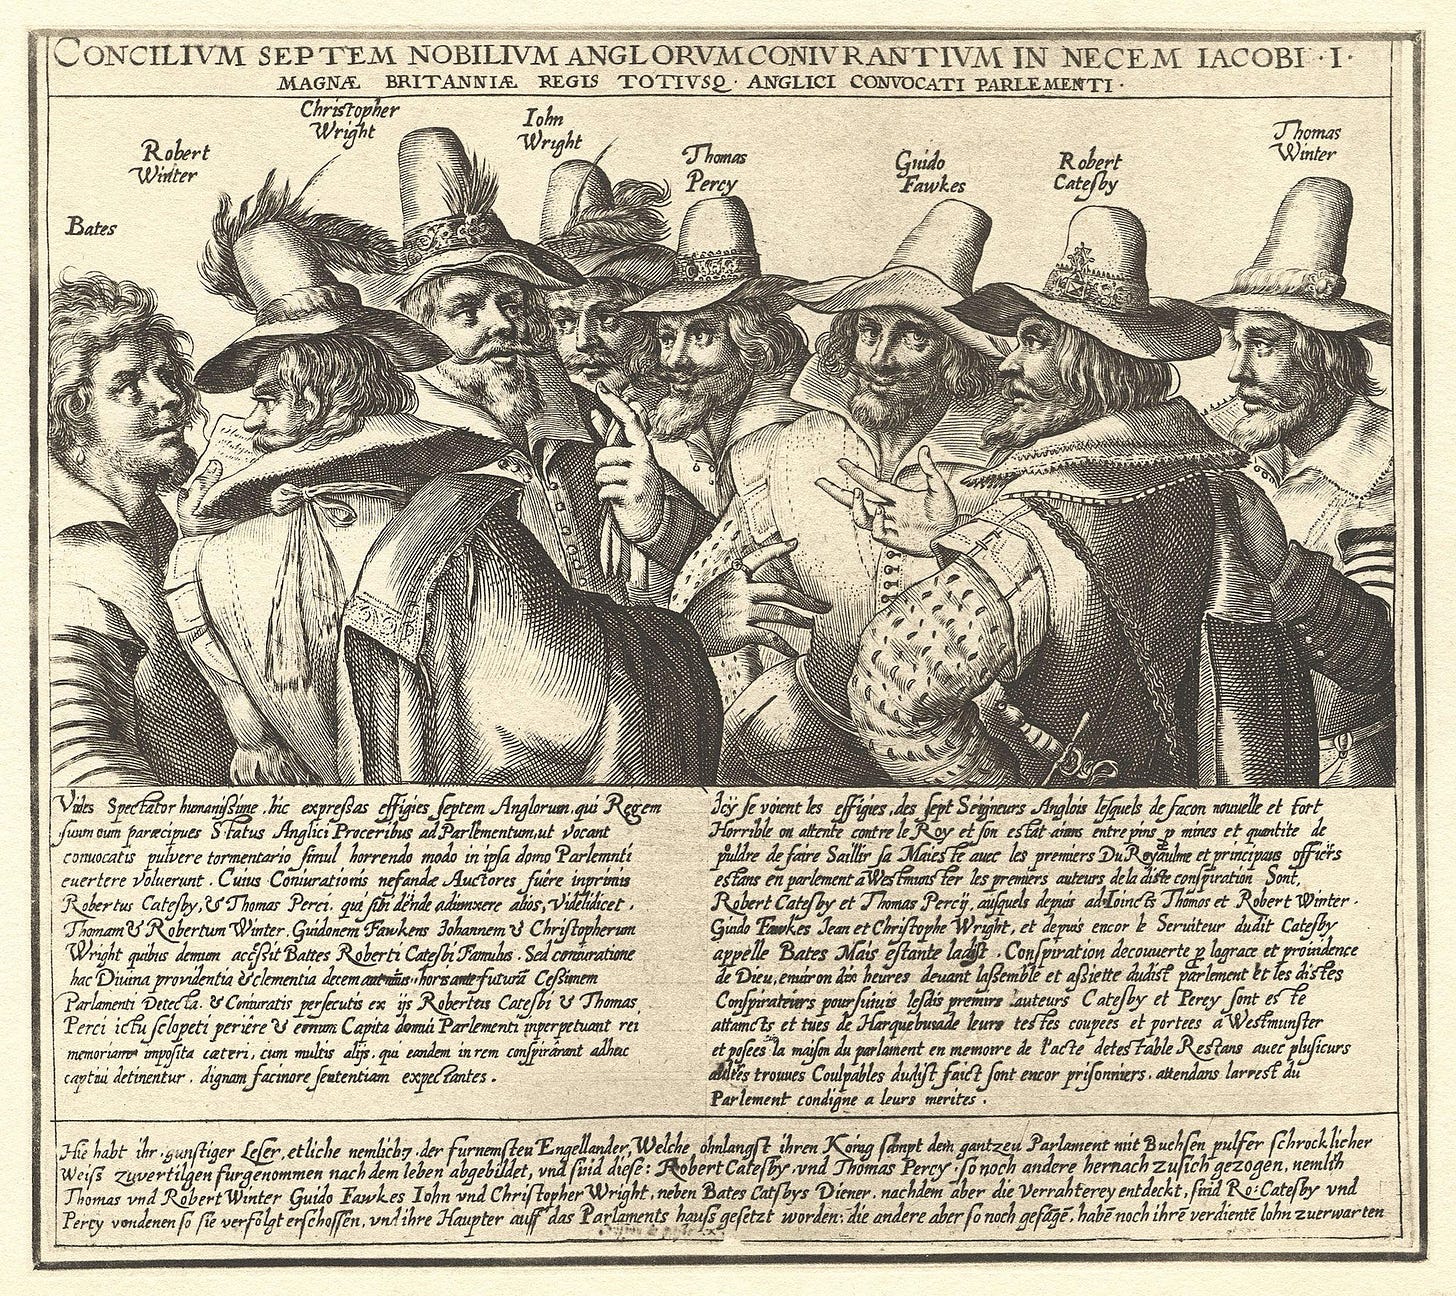 CONCILIVM SEPTEM NOBILIVM ANGLORVM CONIVRANTIVM IN NECEM IACOBI ·I·
MAGNÆ BRITANNIÆ REGIS TOTIVSQ· ANGLICI CONVOCATI PARLEMENTI·
Bates
Robert
Winter
Christopher
Wright
Iohn
Wright
Thomas
Percy
Guido
Fawkes
Robert
Catesby
Thomas
Winter
Vides Spectator humanissime, hic expressas effigies septem Anglorum, qui Regem
suum cum præcipues Status Anglici Proceribus ad Parlementum, ut vocant
convocatis pulvere tormentario simul horrendo modo in ipsa domo Parlemnti
evertere voluerunt. Cuius Coniurationis nefandæ Auctores fuêre inprimis
Robertus Catesby, & Thomas Perci. qui sibi deinde adiunxere alios, Videlidicet.
Thomam & Robertum Winter. Guidonem Fawkens Johannem & Christopherum
Wright quibus demum accessit Battes Roberti Catesbi Famulus. Sed coniuratione
hac Divina providentia & clementia decem horis ante futurā Cessinem
Parlamenti Detecta. & Coniuratis persecutis ex ijs Robertus Catesbi & Thomas
Perci ictu sclopeti periêre & eorum Capita domui Parlementi inperpetuam rei
memoriam imposita cæteri, cum multis alijs, qui eandem in rem conspirârant adhuc
captivi detinentur, dignam facinore sententiam expectantes.
Icÿ se voient les effigies, des sept Seigneurs Anglois lesquels de facon nouuelle et fort
Horrible on attente contre le Roy et son estat aians entrepins p mines et quantite de
puldre de faire Saillir sa Maieste auec les premiers Du Royaulme et principaus officiers
estans en parlement a Westmunster les premiers auteurs de la diste conspiration Sont,
Robert Catesby et Thomas Percij, ausquels depuis ad Ioincts Thomas et Robert Winter.
Guido Fawkes Jean et Christophe Wright, et depuis encor le Seruiteur dudit Catesby
appelle Bates Mais estante Conspiration decouuerte p la grace et prouidence
de Dieu, enuiron dix heures deuant lassemble et assiette dudist parlement et les distes
Conspirateurs poursuiuis lesdis premirs auteurs Catesby et Percy sont este
attamcts et tues de Harquebusade leurs testes coupees et portees a Westmunster
et posees la maison du parlament en memoire de l'acte detestable Restans auec plusieurs
trouues Coulpables dudist faict sont encor prisonniers, attendans larrest du
Parlement condigne a leurs merites.
Hie habt ihr gunstiger Leser, etliche nemlich7 der furnemsten Engellander, Welche ohnlangst ihren König sampt dem gantzen Parlament mit Buchsen pulfer schrocklicher
Weiss zuvertilgen furgenommen nach dem leben abgebildet, vnd sind diese: Robert Catesby vnd Thomas Percy so noch andere hernach zu sich gezogen, nemlich
Thomas vnd Robert Winter Guido Fawkes Iohn vnd Christopher Wright, neben Bates Catsbys Diener. nachdem aber die Verrahterey entdeckt, sind Ro: Catesby vnd
Percy vondenen so sie verfolgt erschossen, vnd ihre Haupter auff das Parlaments hauss gesetzt worden; die andere aber so noch gefāgē, habē noch ihrē verdientē lohn zuerwarten